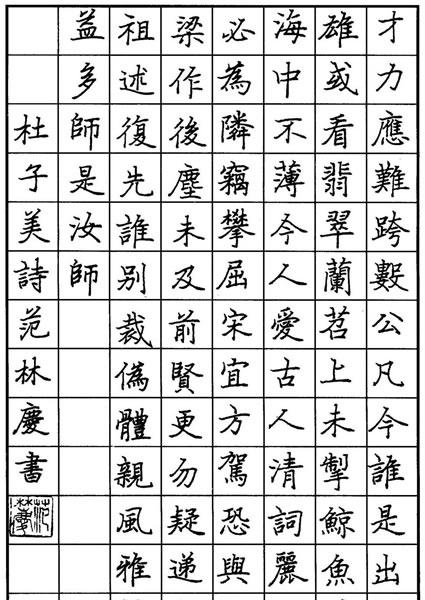 才力應難跨數公凡今誰是出
雄或看翡翠蘭苕上未掣鯨魚
海中不薄今人愛古人清詞麗
必為隣竊攀屈宋宜方駕恐與
梁作後塵未及前賢更勿疑递
祖述復先誰別裁偽體親風雅
益多師是汝師
杜子美詩范林慶書